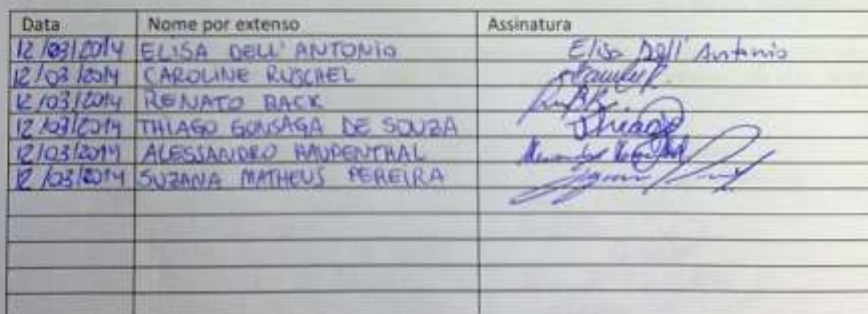 Data Nome por extenso Assinatura
12/03/2014 ELISA DELL' ANTONIO Elisa Dell' Antonio
12/03/2014 CAROLINE RUSCHEL
12/03/2014 RENATO BACK
12/03/2014 THIAGO GONSAGA DE SOUZA Thiago
12/03/2014 ALESSANDRO HAUPENTHAL
12/03/2014 SUZANA MATHEUS PEREIRA